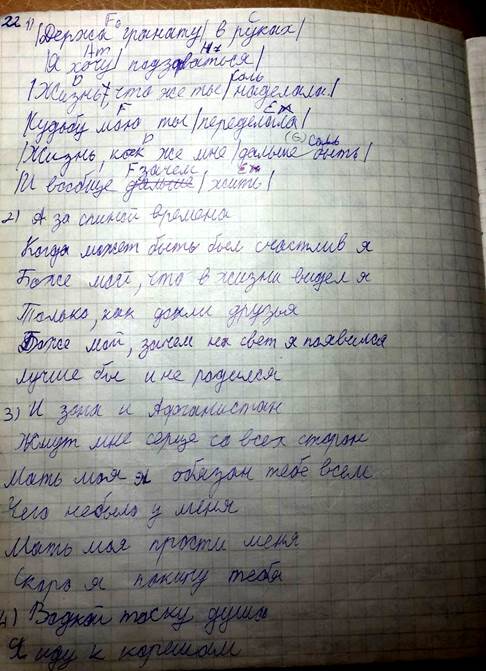 22 1) |Держа гранату| в руках|
F C
|Я хочу| подзорваться|
Am
|Жизнь, что же ты| наделала|
D соль
Судьбу мою ты| переделала|
F Em
|Жизнь, как же мне| дальше быть|
D (G) соль
|И вообще зачем| жить|
F Em
2) А за спиной времена
Когда может быть был счастлив я
Боже мой, что в жизни видел я
Только, как дохли друзья
Боже мой, зачем на свет я появился
Лучше бы и не родился
3) И зона и Афганистан
Жмут мне серце со всех сторон
Мать моя я обязан тебе всем
Чего небыло у меня
Мать моя прости меня
Скоро я покину тебя
4) Водкой тоску душа
Я иду к корешам